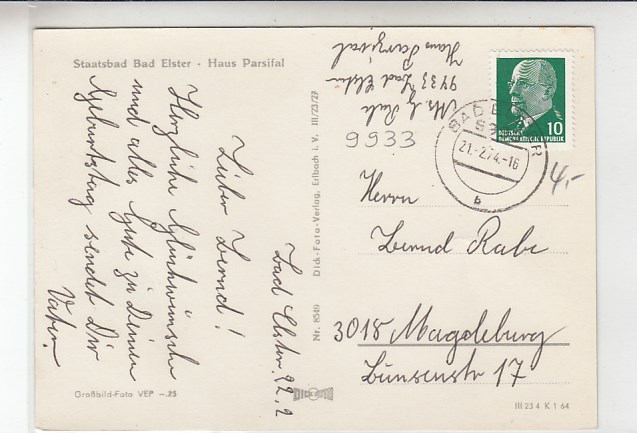 Staatsbad Bad Elster · Haus Parsifal
Bad Elster, 22.2
Lieber Bernd!
Herzliche Glückwünsche
und alles Gute zu Deinem
Geburtstag sendet Dir
Vater.
Großbild-Foto VEP –.25
Nr. 8549 Dick-Foto-Verlag, Erlbach i. V. III/23/27
DICK
Rabe
9933 Bad Elster
Haus Parzival
9933
DEUTSCHE
DEMOKRATISCHE REPUBLIK
10
BAD ELSTER
21.-2.74.-16
b
4,-
Herrn
Bernd Rabe
3018 Magdeburg
Bunsenstr 17
III 23 4 K 1 64